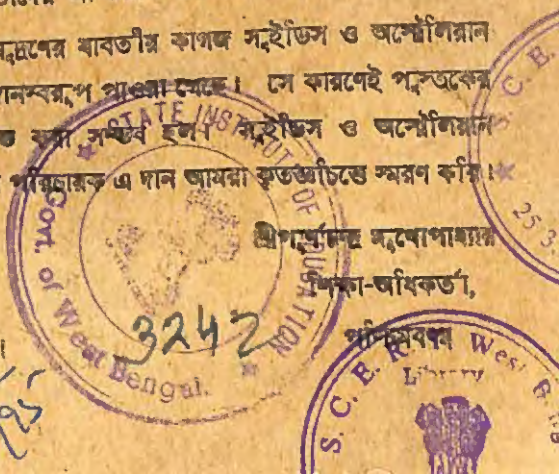 মুদ্রণের যাবতীয় কাগজ সুইডিস ও অস্ট্রেলিয়ান
দানস্বরূপ পাওয়া গেছে। সে কারণেই পুস্তকের
করা সম্ভব হল। সুইডিস ও অস্ট্রেলিয়ান
পরিচায়ক এ দান আমরা কৃতজ্ঞচিত্তে স্মরণ করি।
মুখোপাধ্যায়
শিক্ষা-অধিকর্তা,
পশ্চিমবঙ্গ
STATE INSTITUTE OF EDUCATION
Govt. of West Bengal.
3242
S. C. E. R. T. West
Library
S. C.
25.3.